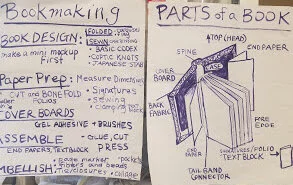 Bookmaking
BOOK DESIGN:
make a mini mockup
First
FOLDED
SEWN
• BASIC CODEX
• COPTIC KNOTS
• JAPANESE STAB
Paper Prep:
• Measure Dimensions
• CUT AND BONE FOLD
FOLIOS
• Signatures
• Sewing
COVER BOARDS
GEL ADHESIVE + BRUSHES
ASSEMBLE
END PAPERS, TEXT BLOCK
• GLUE, CUT
PRESS
EMBELLISH:
• page marker
fibers and beads
closures
• collage
PARTS of a BOOK
TOP (HEAD)
SPINE
END PAPER
COVER BOARD
BACK FABRIC
FORE EDGE
END PAPER
SIGNATURES/FOLIO
TEXT BLOCK
TAIL BAND
CONNECTOR